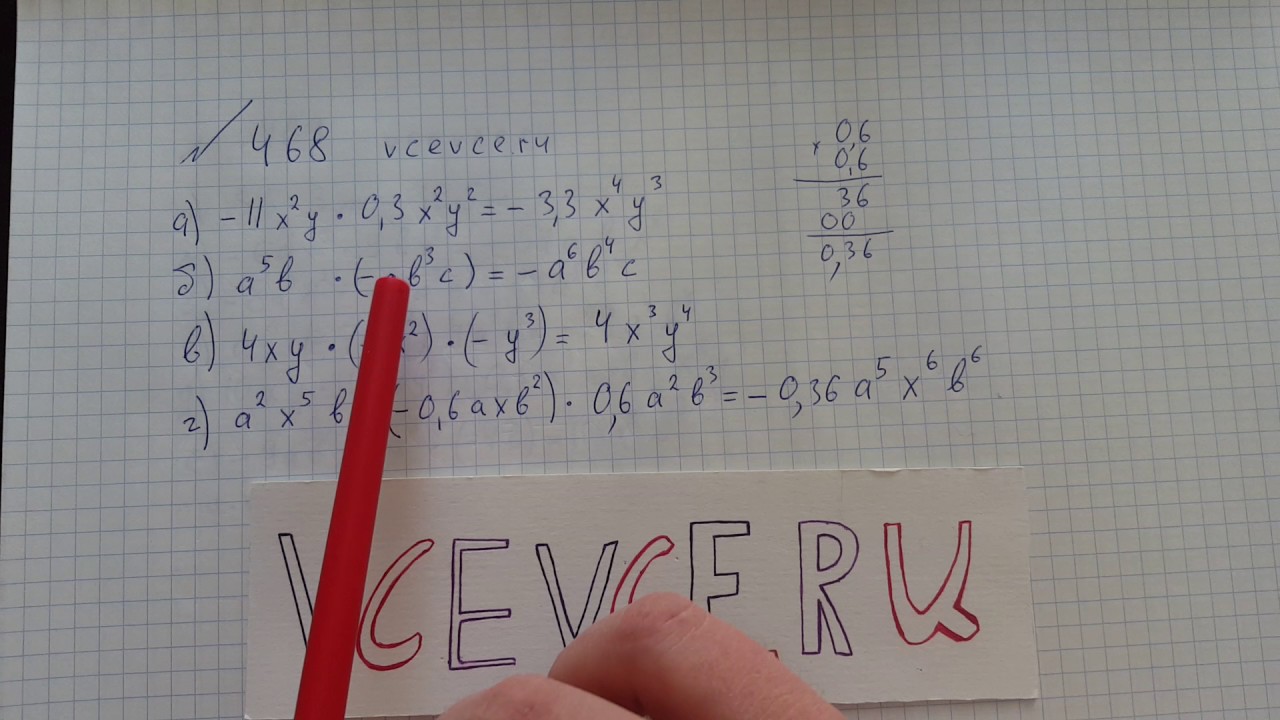 № 468 vcevce.ru
а) -11x²y · 0,3x²y² = - 3,3x⁴y³
б) a⁵b · (- b³c) = - a⁶b⁴c
в) 4xy · ( x²) · (- y³) = 4x³y⁴
г) a²x⁵b (-0,6axb²) · 0,6a²b³ = - 0,36a⁵x⁶b⁶
× 0,6
0,6
36
00
0,36
VCEVCE.RU